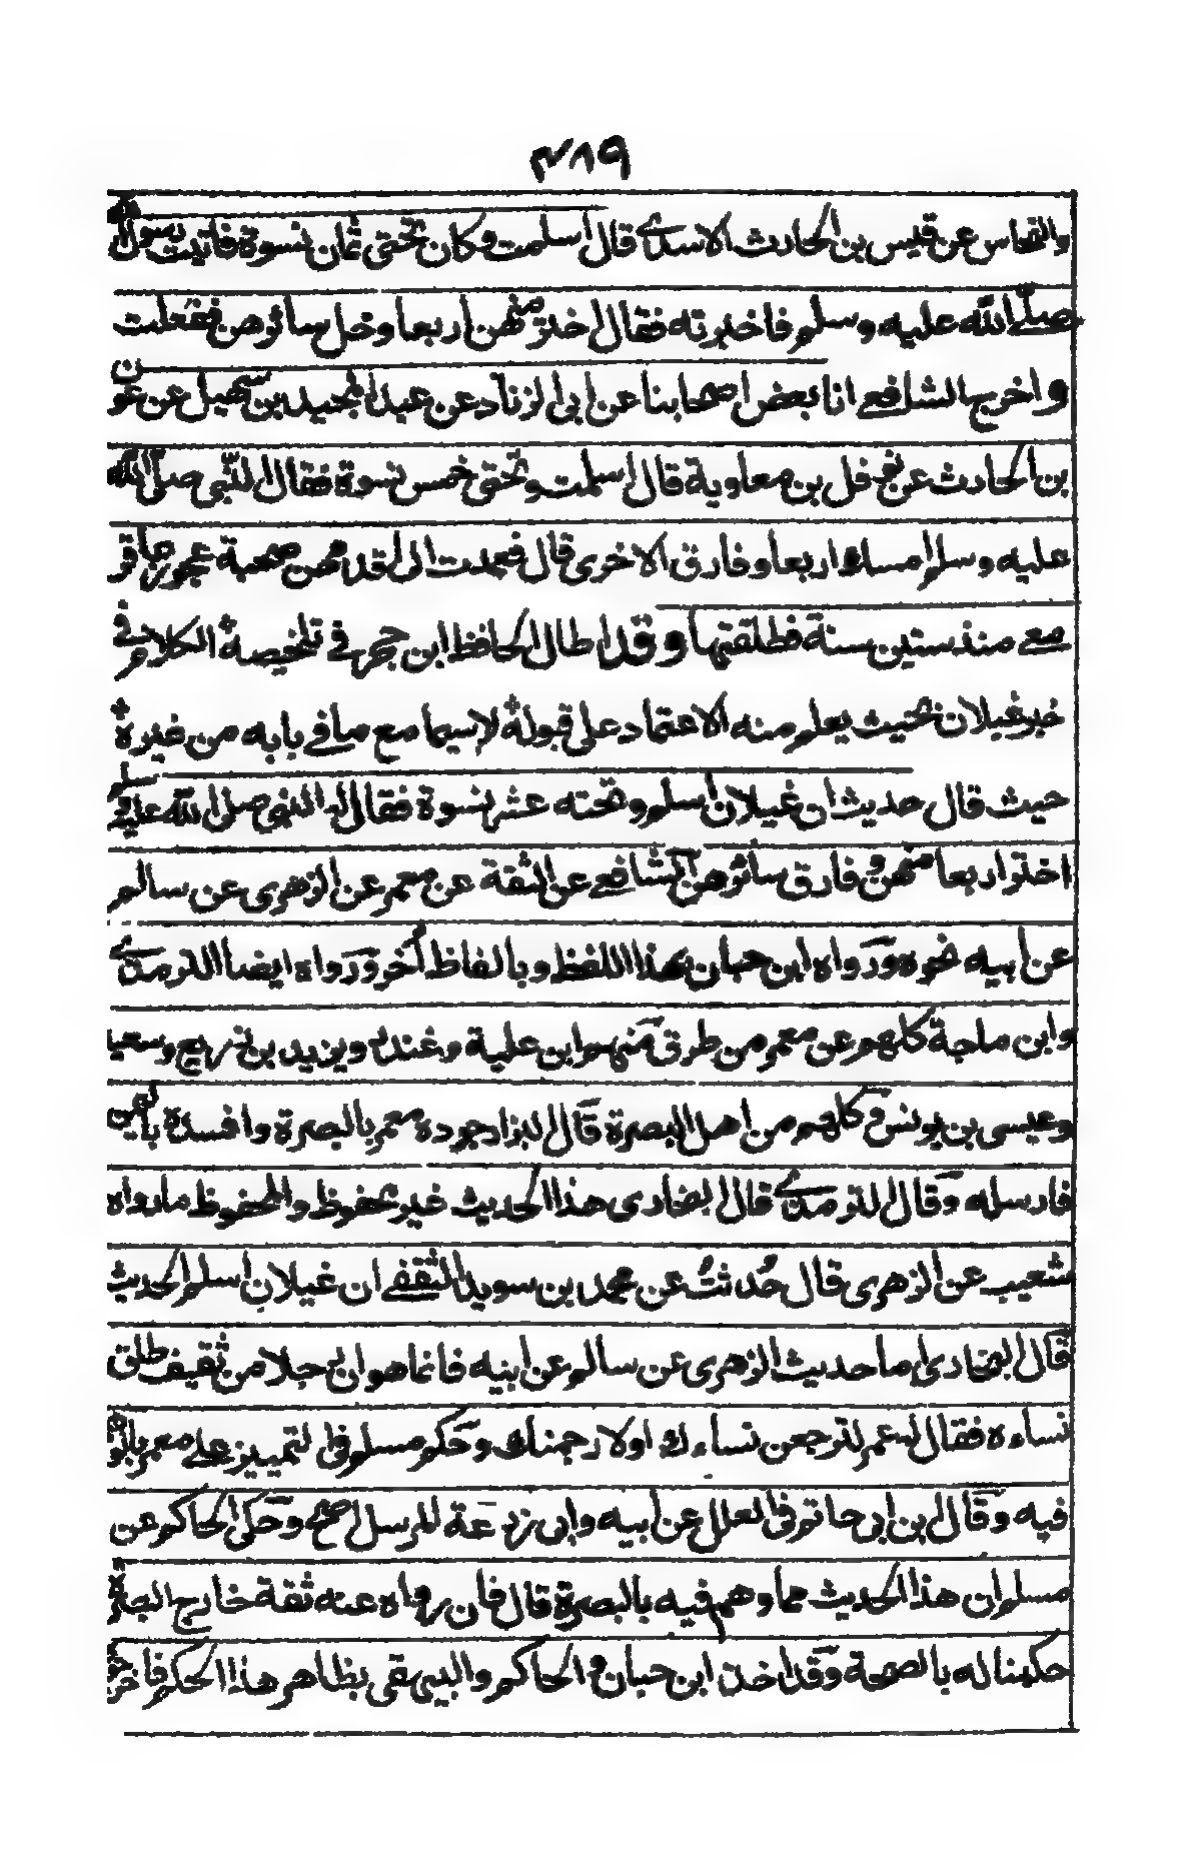 ٣٨٩
والنحاس عن قيس بن الحارث الاسدى قال اسلمت وكان تحتى ثمان نسوة فاتيت رسول الله
صلى الله عليه وسلم فاخبرته فقال اختر منهن اربعا وخل سائرهن ففعلت
واخرج الشافعى انا بعض اصحابنا عن ابى الزناد عن عبد المجيد بن سهيل عن عوف
بن الحارث عن نوفل بن معاوية قال اسلمت وتحتى خمس نسوة فقال النبى صلى الله
عليه وسلم امسك اربعا وفارق الاخرى قال فعمدت الى اقدمهن صحبة عجوز عاقر
معى منذ ستين سنة فطلقتها وقد اطال الحافظ ابن حجر فى تلخيصه الكلام فى
خبر غيلان بحيث يعلم منه الاعتماد على قبوله لاسيما مع ما فى بابه من غيره
حيث قال حديث ان غيلان اسلم وتحته عشر نسوة فقال له النبى صلى الله عليه وسلم
اختر اربعا منهن وفارق سائرهن الشافعى عن الثقة عن معمر عن الزهرى عن سالم
عن ابيه نحوه ورواه ابن حبان بهذا اللفظ وبالفاظ اُخر ورواه ايضا الترمذى
وابن ماجة كلهم عن معمر من طرق منهم ابن علية وغندر ويزيد بن زريع وسعيد
وعيسى بن يونس وكلهم من اهل البصرة قال البزار جوده معمر بالبصرة وافسده باليمن
فارسله وقال الترمذى قال البخارى هذا الحديث غير محفوظ والمحفوظ ما رواه
شعيب عن الزهرى قال حُدثتُ عن محمد بن سويد الثقفى ان غيلان اسلم الحديث
قال البخارى اما حديث الزهرى عن سالم عن ابيه فانما هو ان رجلا من ثقيف طلق
نساءه فقال له عمر لترجعن نساءك اولارجمنك وحكم مسلم فى التمييز على معمر بالوهم
فيه وقال ابن ابى حاتم فى العلل عن ابيه وابى زرعة المرسل اصح وحكى الحاكم عن
مسلم ان هذا الحديث مما وهم فيه بالبصرة قال فان رواه عنه ثقة خارج البصرة
حكمنا له بالصحة وقد اخذ ابن حبان والحاكم والبيهقى بظاهر هذا الحكم فاخرجوه